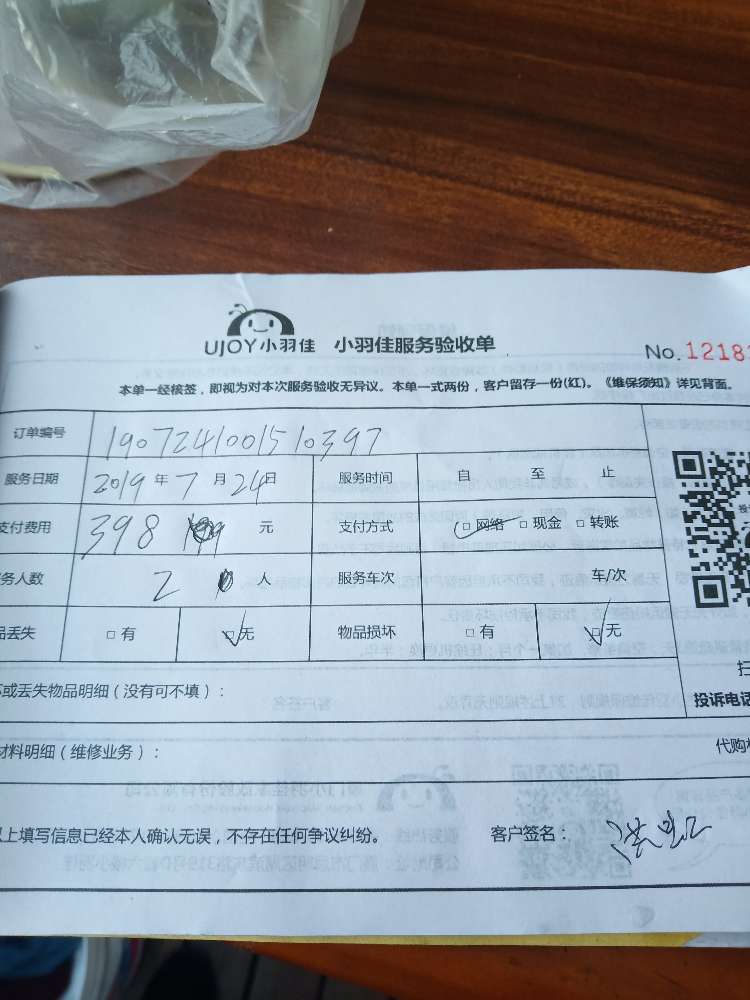 UJOY小羽佳 小羽佳服务验收单
No.12181
本单一经核签，即视为对本次服务验收无异议。本单一式两份，客户留存一份(红)。《维保须知》详见背面。
订单编号 1907241001510397
服务日期 2019 年 7 月 24日 服务时间 自 至 止
支付费用 398 元 支付方式 □网络 □现金 □转账
务人数 2 人 服务车次 车/次
品丢失 □有 □无 物品损坏 □有 □无
坏或丢失物品明细（没有可不填）：
扫
投诉电话
材料明细（维修业务）：
代购
以上填写信息已经本人确认无误，不存在任何争议纠纷。 客户签名：